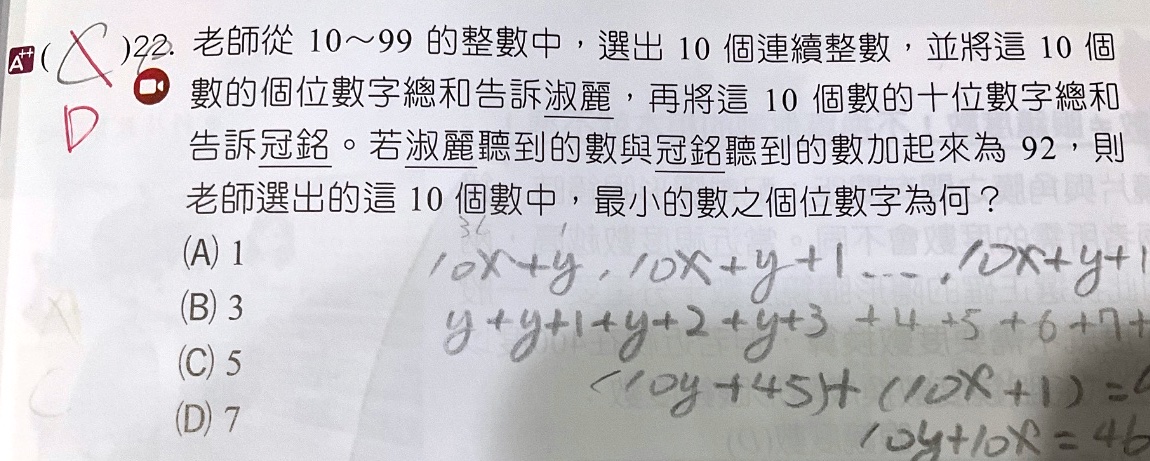 A++ ( )22. 老師從 10～99 的整數中，選出 10 個連續整數，並將這 10 個
D 數的個位數字總和告訴淑麗，再將這 10 個數的十位數字總和
告訴冠銘。若淑麗聽到的數與冠銘聽到的數加起來為 92，則
老師選出的這 10 個數中，最小的數之個位數字為何？
(A) 1
10x+y , 10x+y+1 ---- , 10x+y+1
(B) 3
y+y+1+y+2+y+3 +4 +5 +6 +7+
(C) 5
(10y+45)+(10x+1)=
(D) 7
10y+10x=46